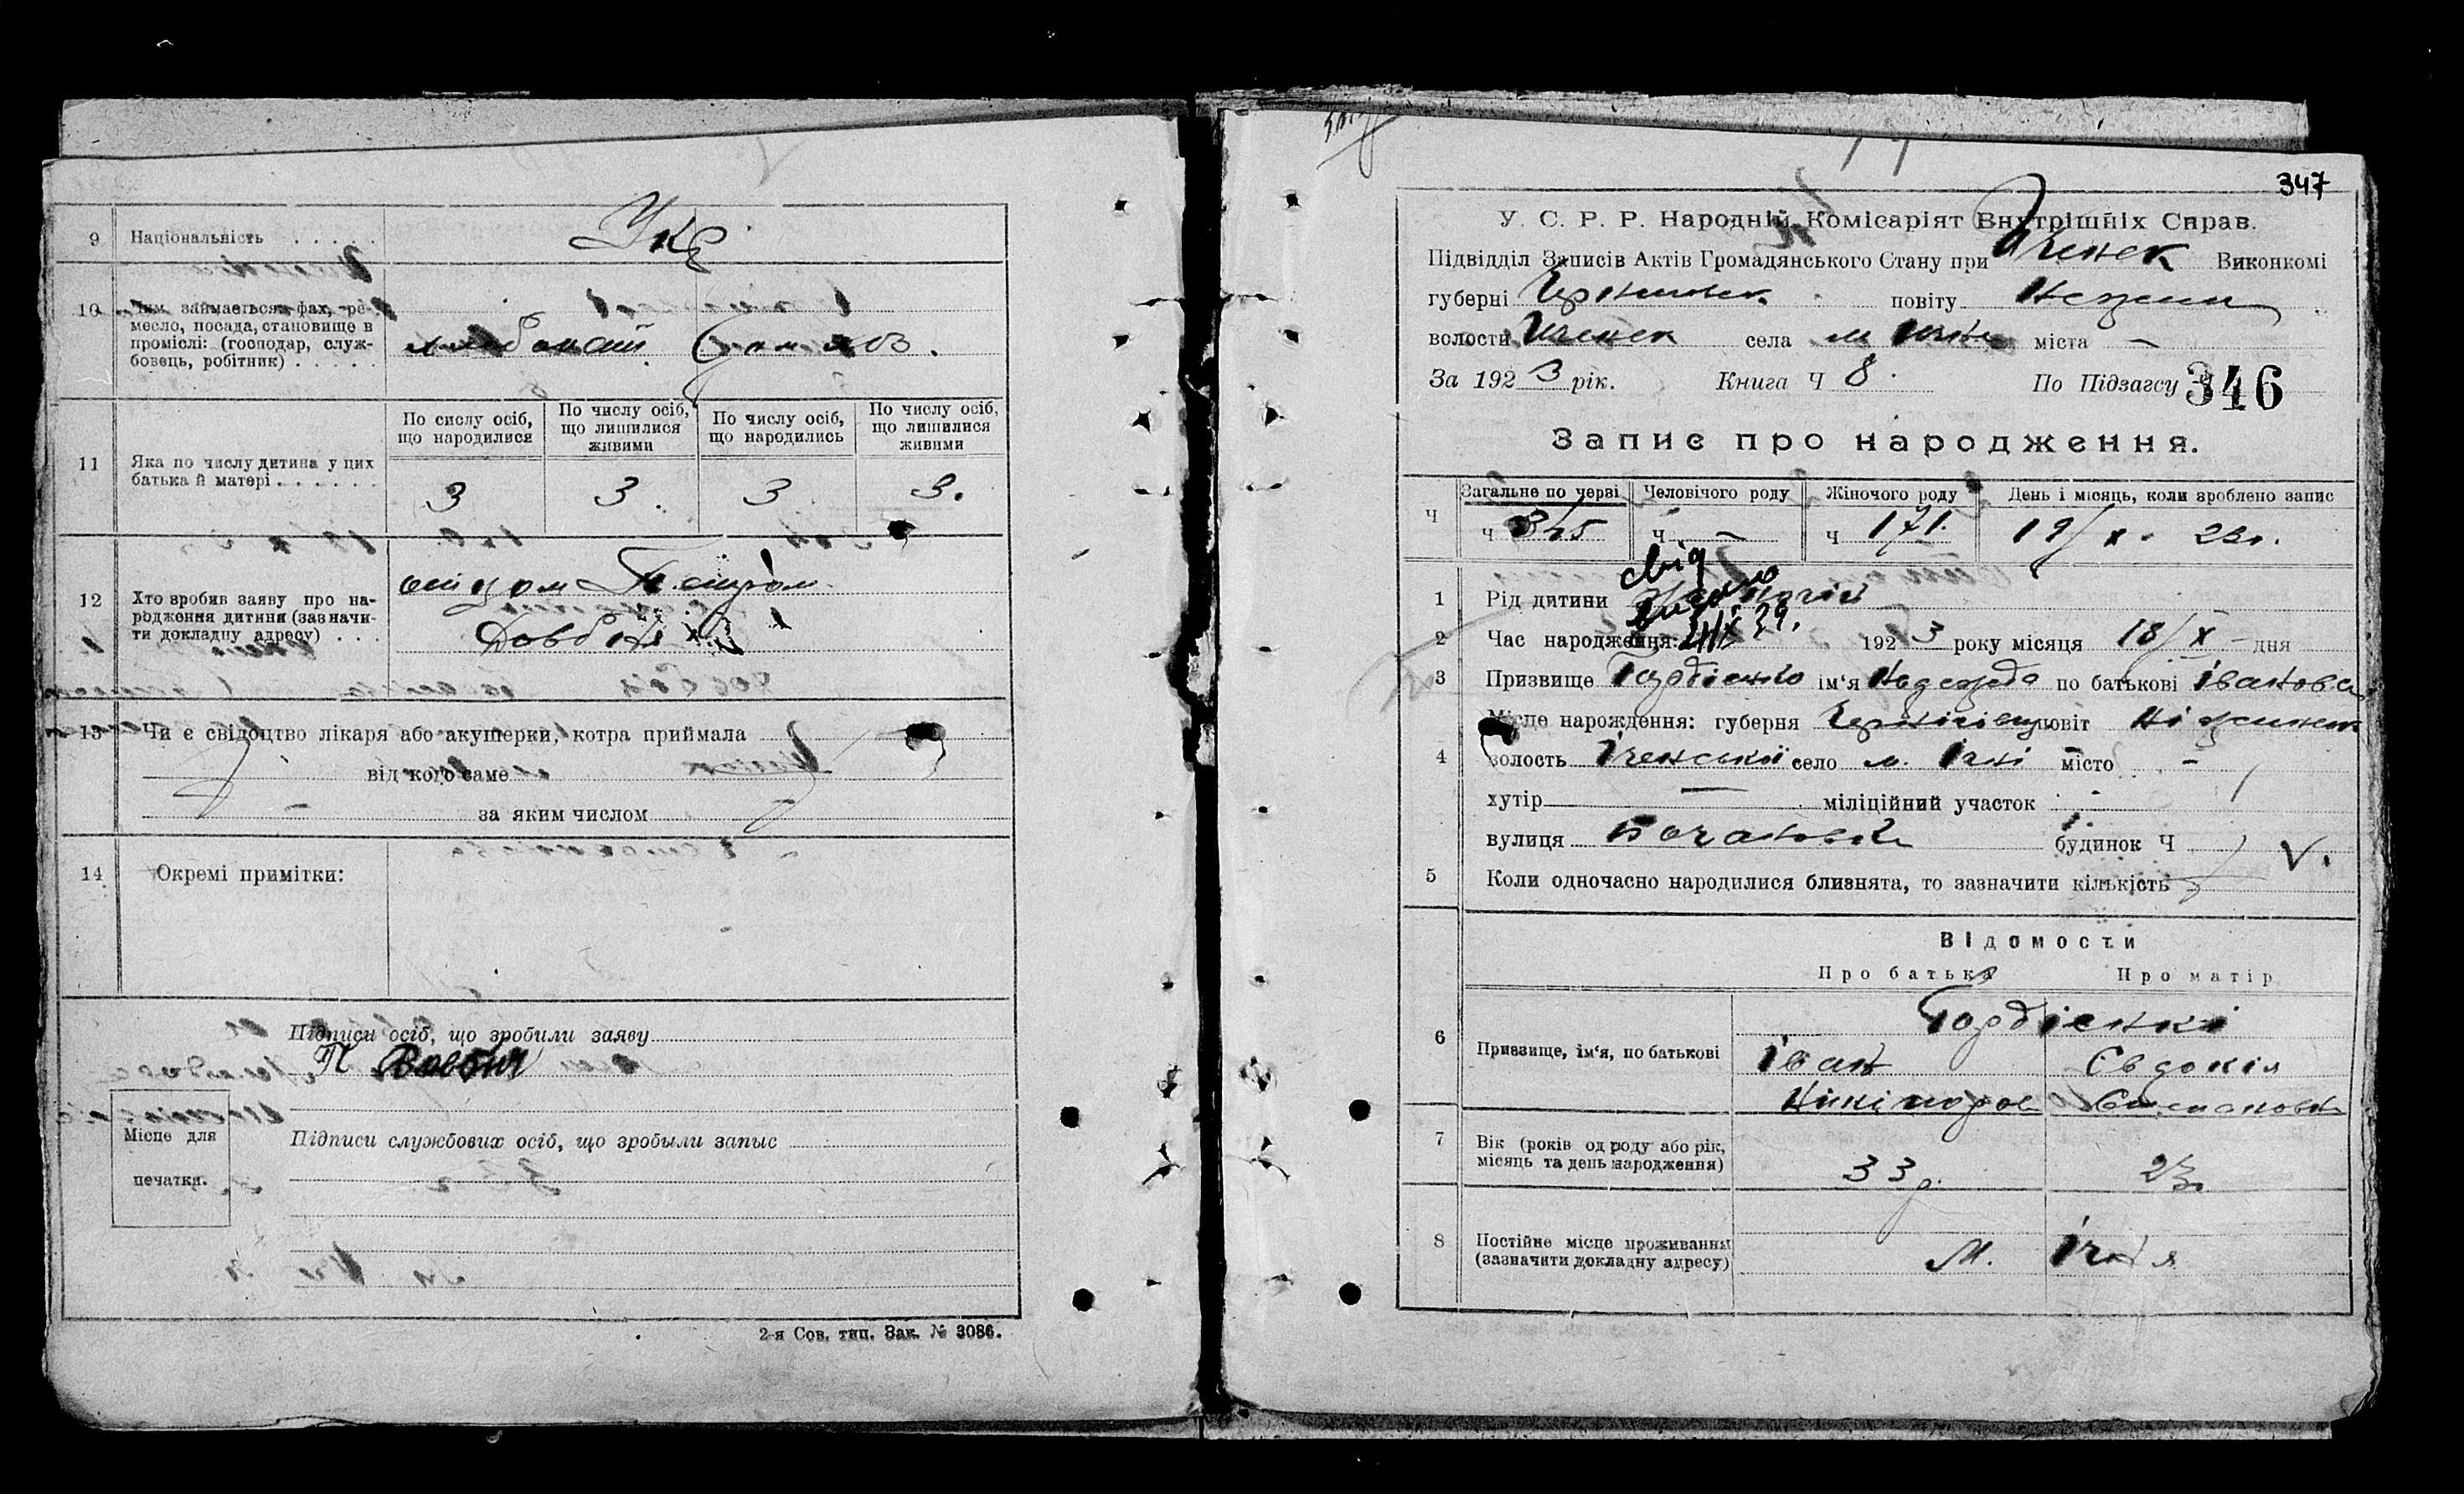 9 Національність . . . . . Укр
10 Чим займається: фах, ре-
месло, посада, становище в
промислі: (господар, служ-
бовець, робітник) . . . . .
11 Яка по числу дитина у цих
батька й матері . . . . . .
По числу осіб, що народилися
По числу осіб, що лишилися живими
По числу осіб, що народились
По числу осіб, що лишилися живими
3 3. 3 3.
12 Хто зробив заяву про на-
родження дитини (зазначи-
ти докладну адресу) . . .
отцом Петром
Довбня
13 Чи є свідоцтво лікаря або акушерки, котра приймала
від кого саме
за яким числом
14 Окремі примітки:
Підписи осіб, що зробили заяву
П Довбня
Місце для
печатки.
Підписи службових осіб, що зробыли запыс
2-я Сов. тип. Зак. № 3086.
347
У. С. Р. Р. Народній Комісаріят Внутрішніх Справ.
Підвідділ Записів Актів Громадянського Стану при Иченск Виконкомі
губерні Черниговск. повіту Нежин
волости Иченск села м Ична міста —
За 1923 рік. Книга Ч 8. По Підзагсу Ч 346
Запис про народження.
Ч Загальне по черзі Человічого роду Жіночого роду День і місяць, коли зроблено запис
ч 345 ч — ч 171. 19/X. 23г.
свід
видано
1 Рід дитини жіночій
2 Час народження: 1923 року місяця 18/X — дня
3 Призвище Гордієнко ім‘я Надежда по батькові Івановна
4 Місце народження: губерня Чернігівщ повіт Ніжинск
волость Іченської село м. Ічні місто —
хутір — міліційний участок
вулиця будинок Ч
5 Коли одночасно народилися близнята, то зазначити кількість V.
Відомости
Про батька Про матір
6 Призвище, ім‘я, по батькові
Гордієнкі
Іван Євдокія
Нікіфоров Степановна
7 Вік (років од роду або рік,
місяць та день народження)
33 р. 23
8 Постійне місце проживання
(зазначити докладну адресу)
М. Ічня